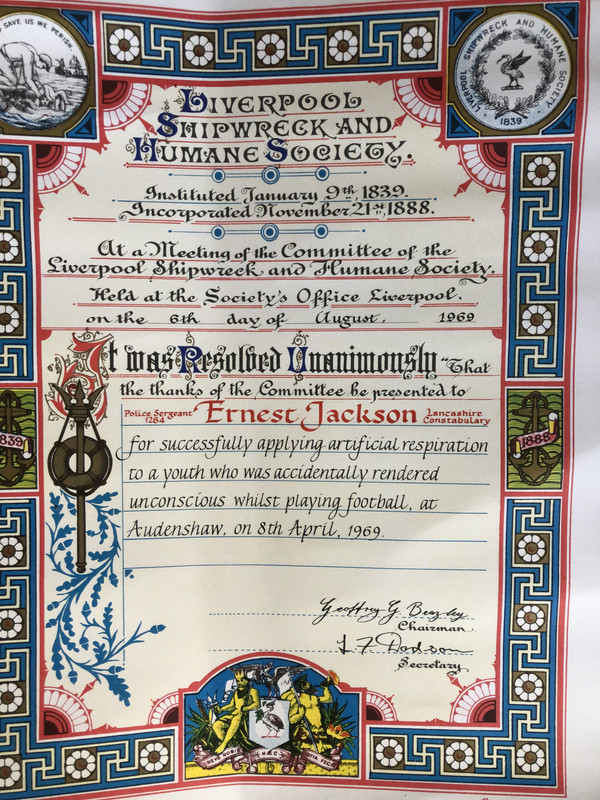 SAVE US WE PERISH
LIVERPOOL SHIPWRECK AND HUMANE SOCIETY
1839
Liverpool
Shipwreck and
Humane Society.
Instituted January 9th, 1839.
Incorporated November 21st, 1888.
At a Meeting of the Committee of the
Liverpool Shipwreck and Humane Society.
Held at the Society's Office Liverpool.
on the 6th day of August. 1969
It was Resolved Unanimously "That
the thanks of the Committee be presented to
Police Sergeant 1264 Ernest Jackson Lancashire Constabulary
for successfully applying artificial respiration
to a youth who was accidentally rendered
unconscious whilst playing football, at
Audenshaw, on 8th April, 1969.
839
1888
Geoffrey G. Beazley
Chairman
L F Dodson
Secretary
DEUS NOBIS HÆC OTIA FECIT